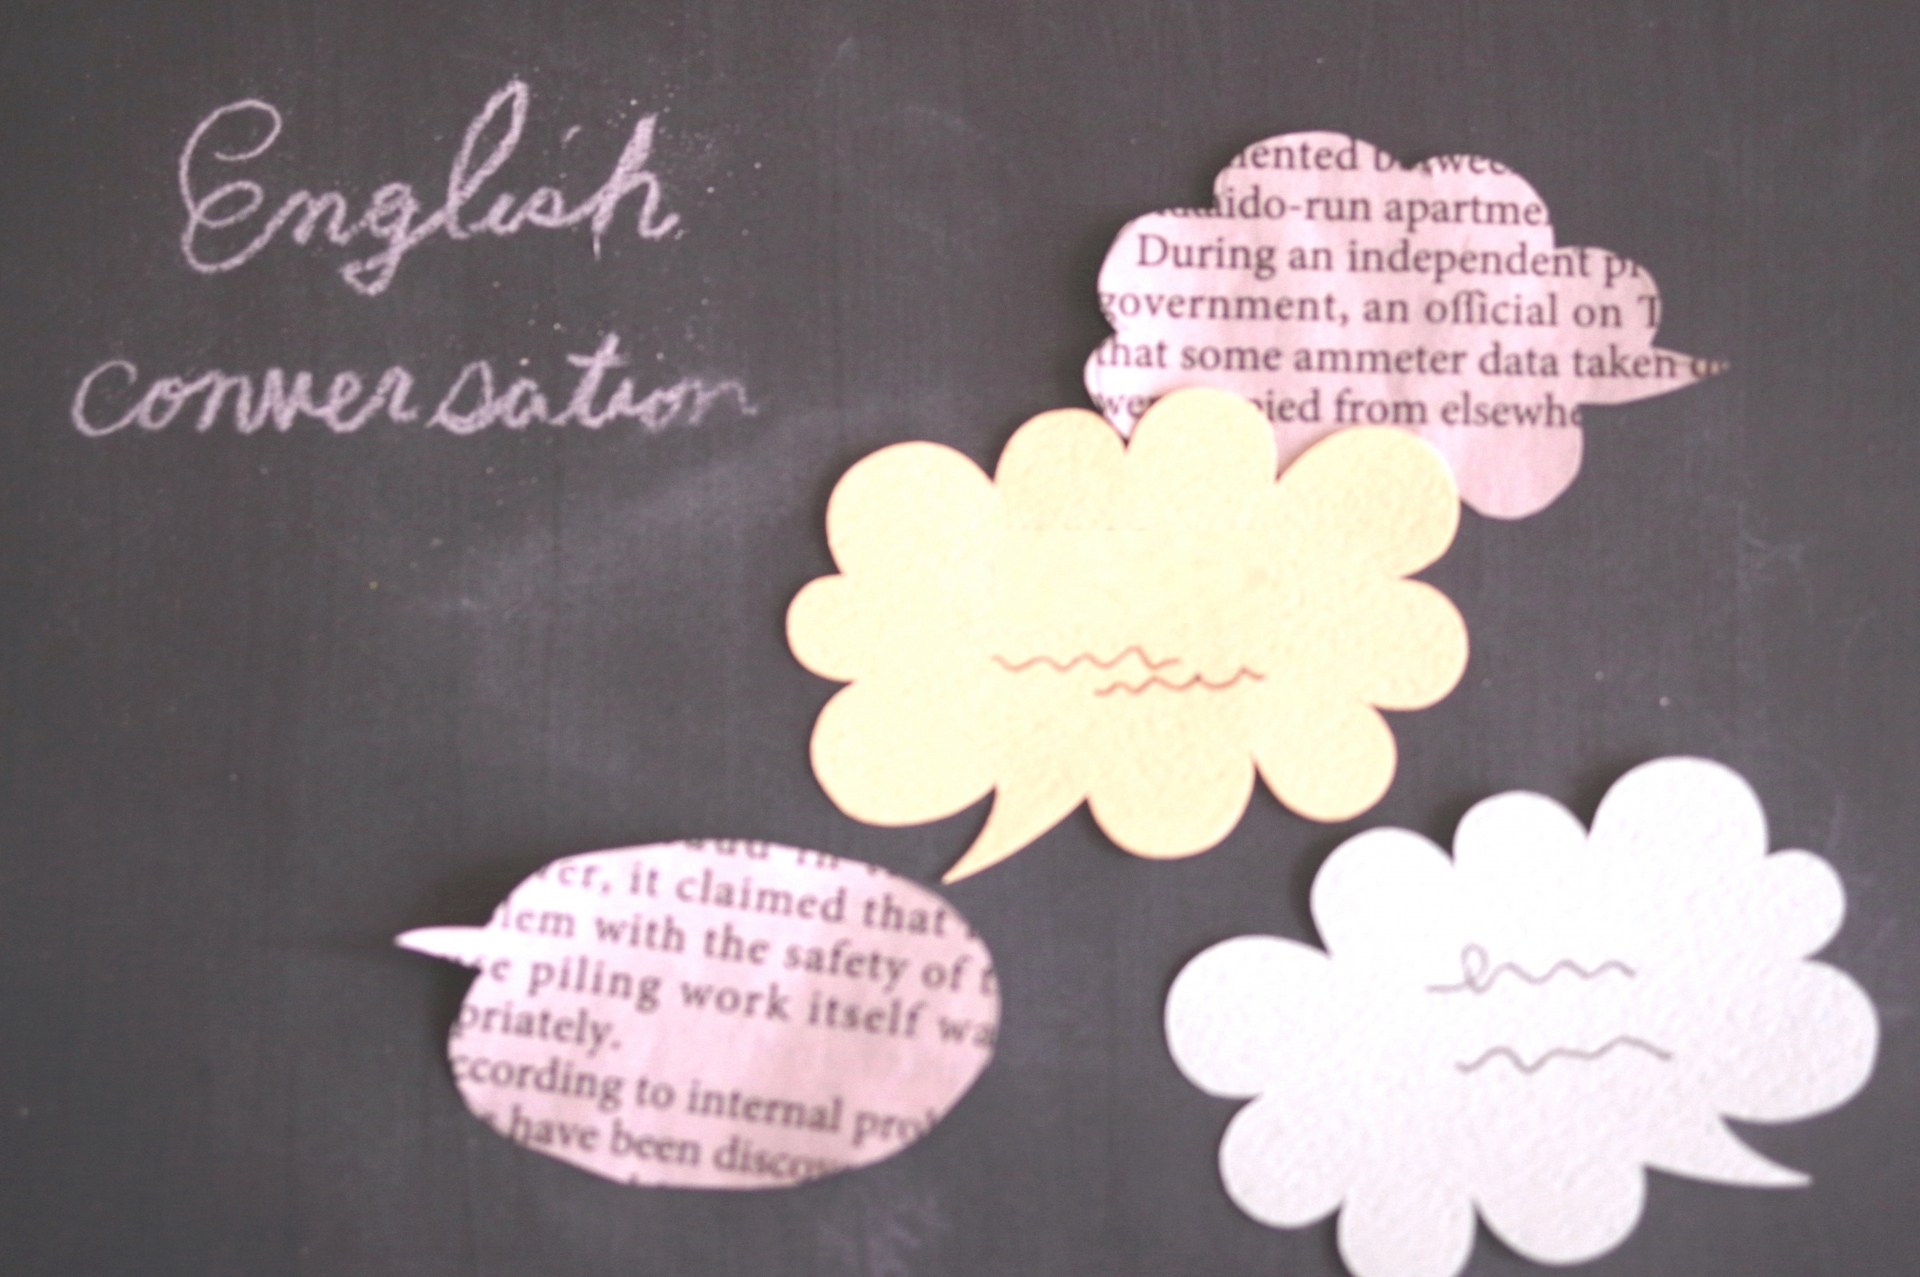 English
conversation
ido-run apartme
During an independent pr
government, an official on T
that some ammeter data taken
ied from elsewhe
er, it claimed that
lem with the safety of t
e piling work itself wa
priately.
ccording to internal pro
have been discov